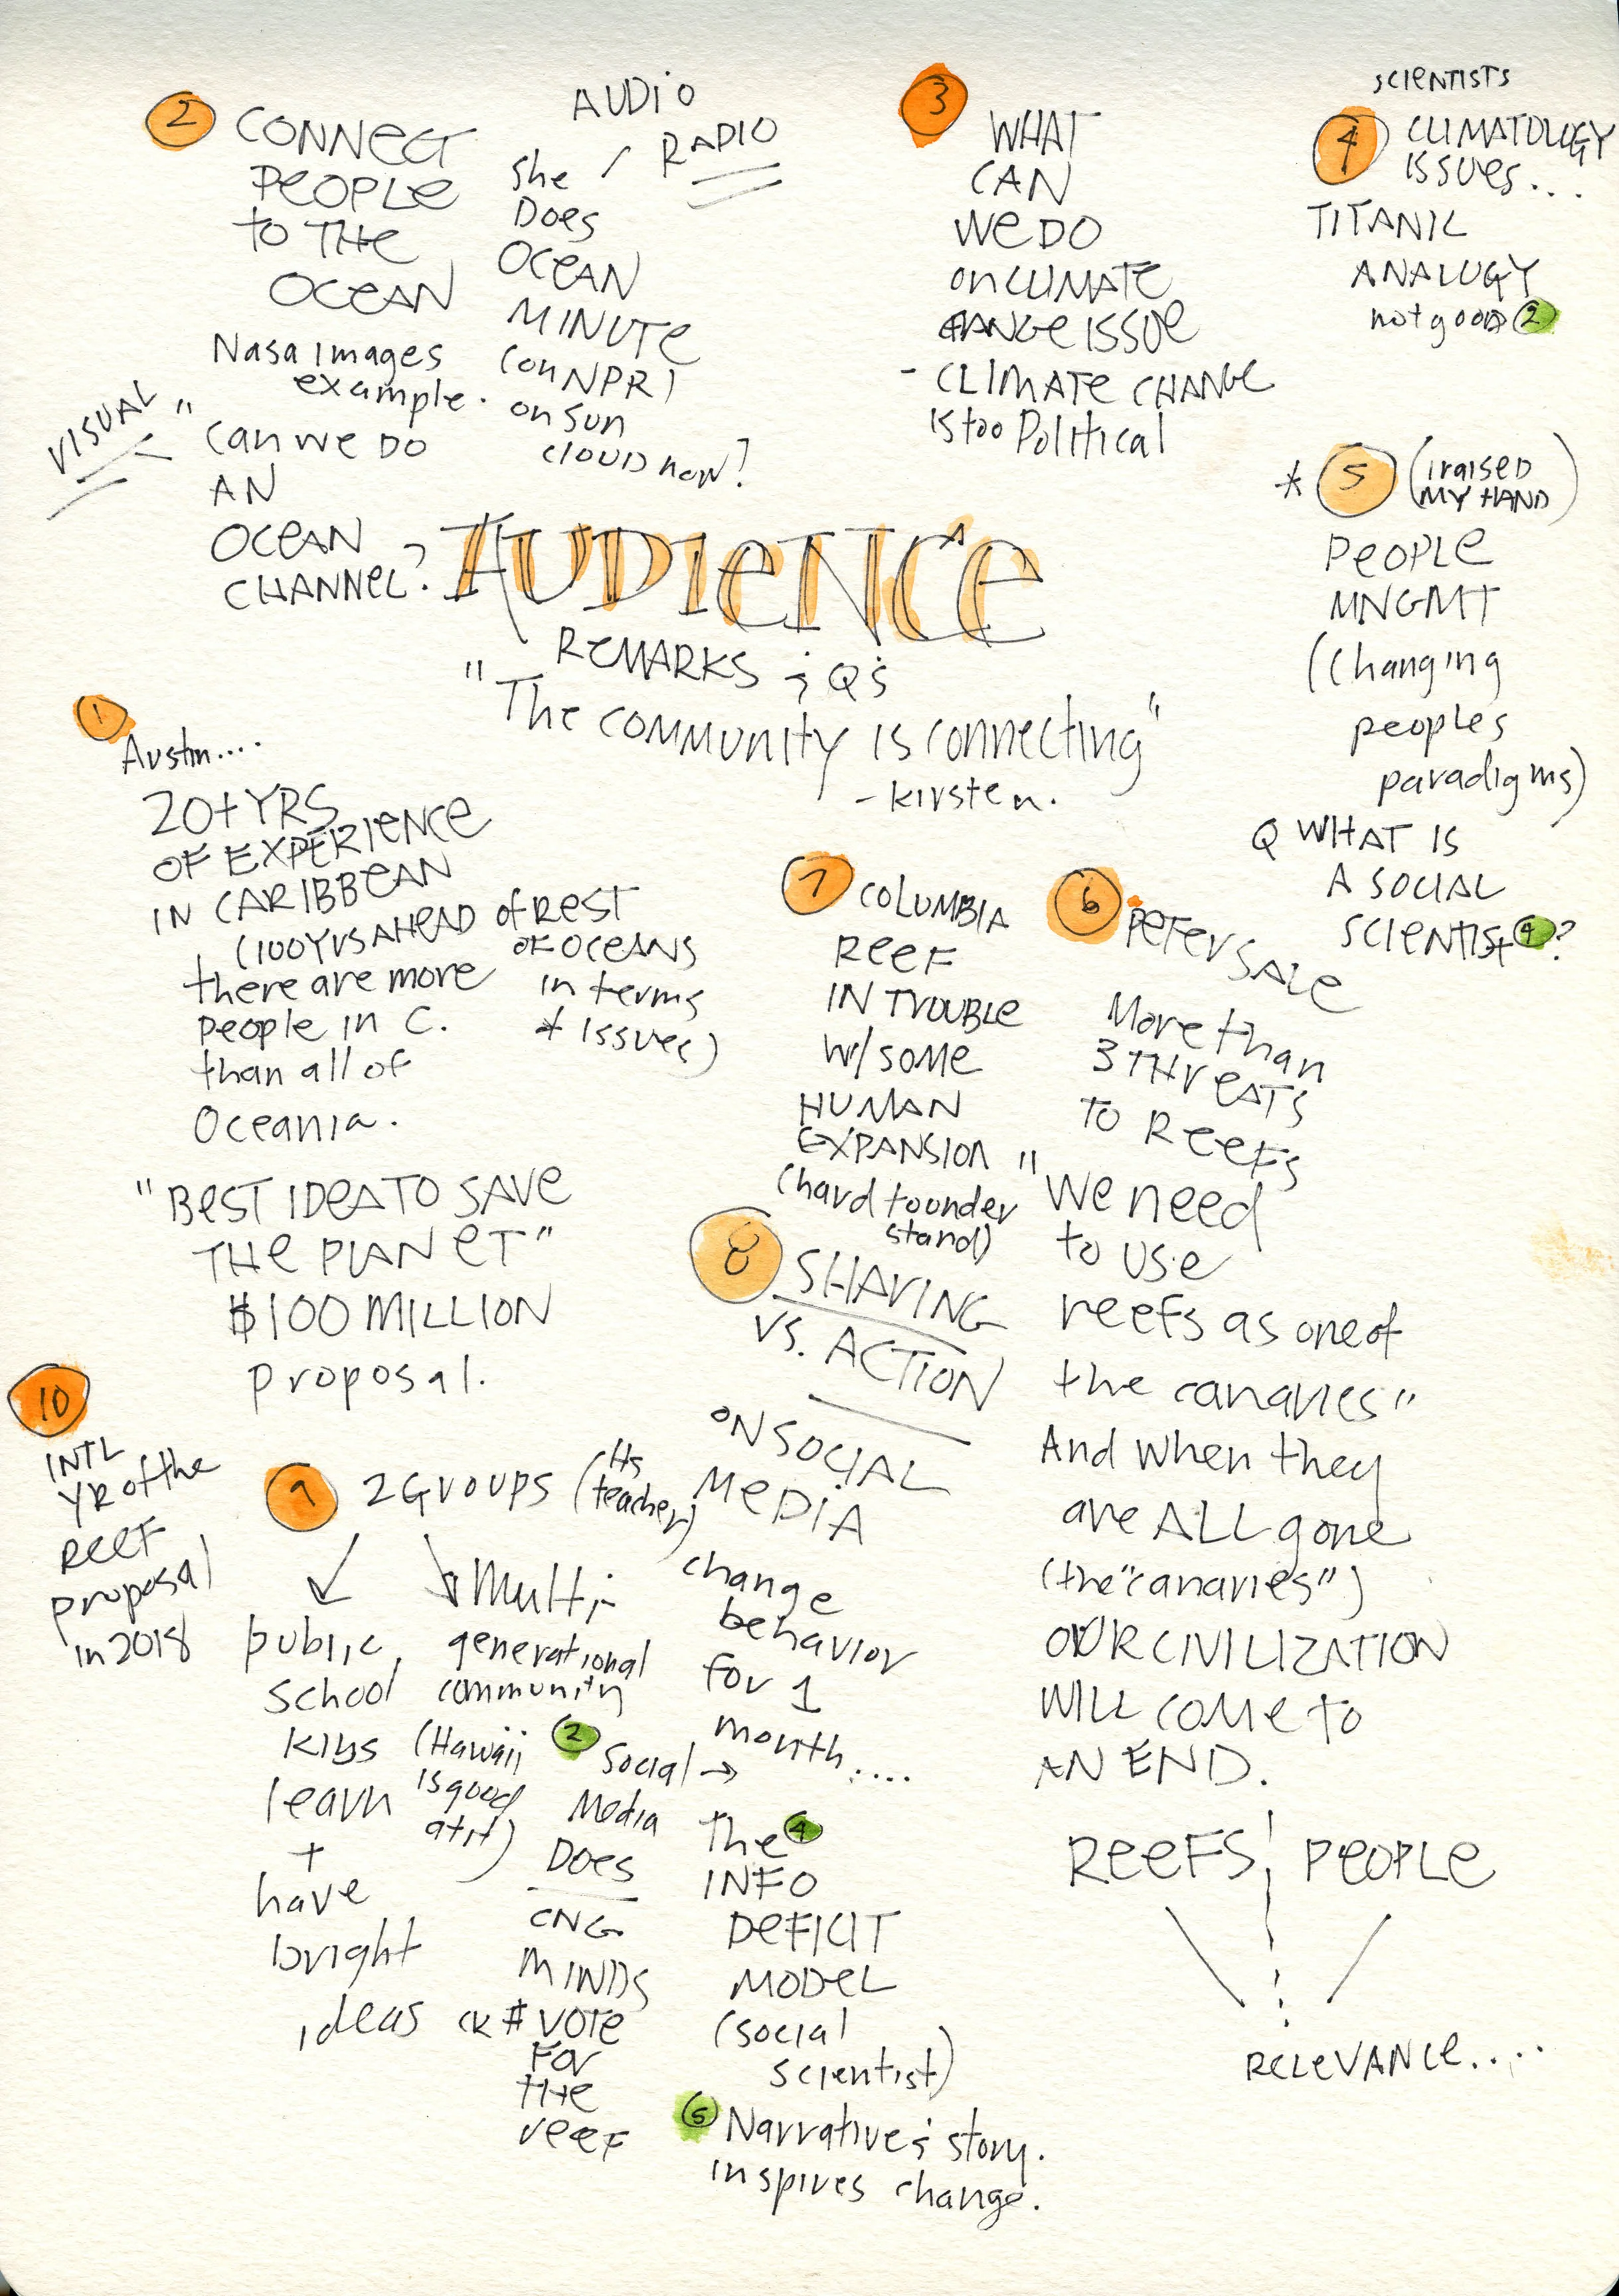 AUDIENCE
REMARKS & Q's
"The community is connecting"
- Kirsten.
1
Austin....
20+ YRS
OF EXPERIENCE
IN CARIBBEAN
(100 Yrs AHEAD of REST
OF OCEANS
in terms
of issues)
there are more
people in C.
than all of
Oceania.
"BEST IDEA TO SAVE
THE PLANET"
$100 MILLION
proposal.
2
CONNECT
PEOPLE
to THE
OCEAN
Nasa images
example.
VISUAL
"can we DO
AN
OCEAN
CHANNEL?
AUDIO
/ RADIO
she
Does
OCEAN
MINUTE
(on NPR)
on Sun
cloud now?
3
WHAT
CAN
WE DO
on CLIMATE
CHANGE ISSUE
- CLIMATE CHANGE
is too Political
SCIENTISTS
4
CLIMATOLOGY
ISSUES...
TITANIC
ANALOGY
not good 2
* 5 (I raised
MY HAND)
PEOPLE
MNGMT
(Changing
peoples
paradigms)
Q WHAT IS
A SOCIAL
SCIENTIST 4?
6
PETER SALE
More than
3 THREATS
TO REEFS
"We need
to use
reefs as one of
the canaries"
And when they
are ALL gone
(the "canaries")
OUR CIVILIZATION
WILL COME TO
AN END.
REEFS PEOPLE
RELEVANCE.....
7
COLUMBIA
REEF
IN TROUBLE
W/ SOME
HUMAN
EXPANSION
(hard to under
stand)
8
SHARING
VS. ACTION
ON SOCIAL
MEDIA
change
behavior
for 1
month....
9
2 Groups (Hs
teacher)
public
school
kids
learn
+
have
bright
ideas
Multi-
generational
community
(Hawaii
is good
at it)
2
Social →
Media
DOES
CNG
MINDS
ck # VOTE
FOR
THE
reef
The 4
INFO
DEFICIT
MODEL
(social
scientist)
5 Narrative & story.
inspires change.
10
INTL
YR of the
REEF
proposal
in 2018